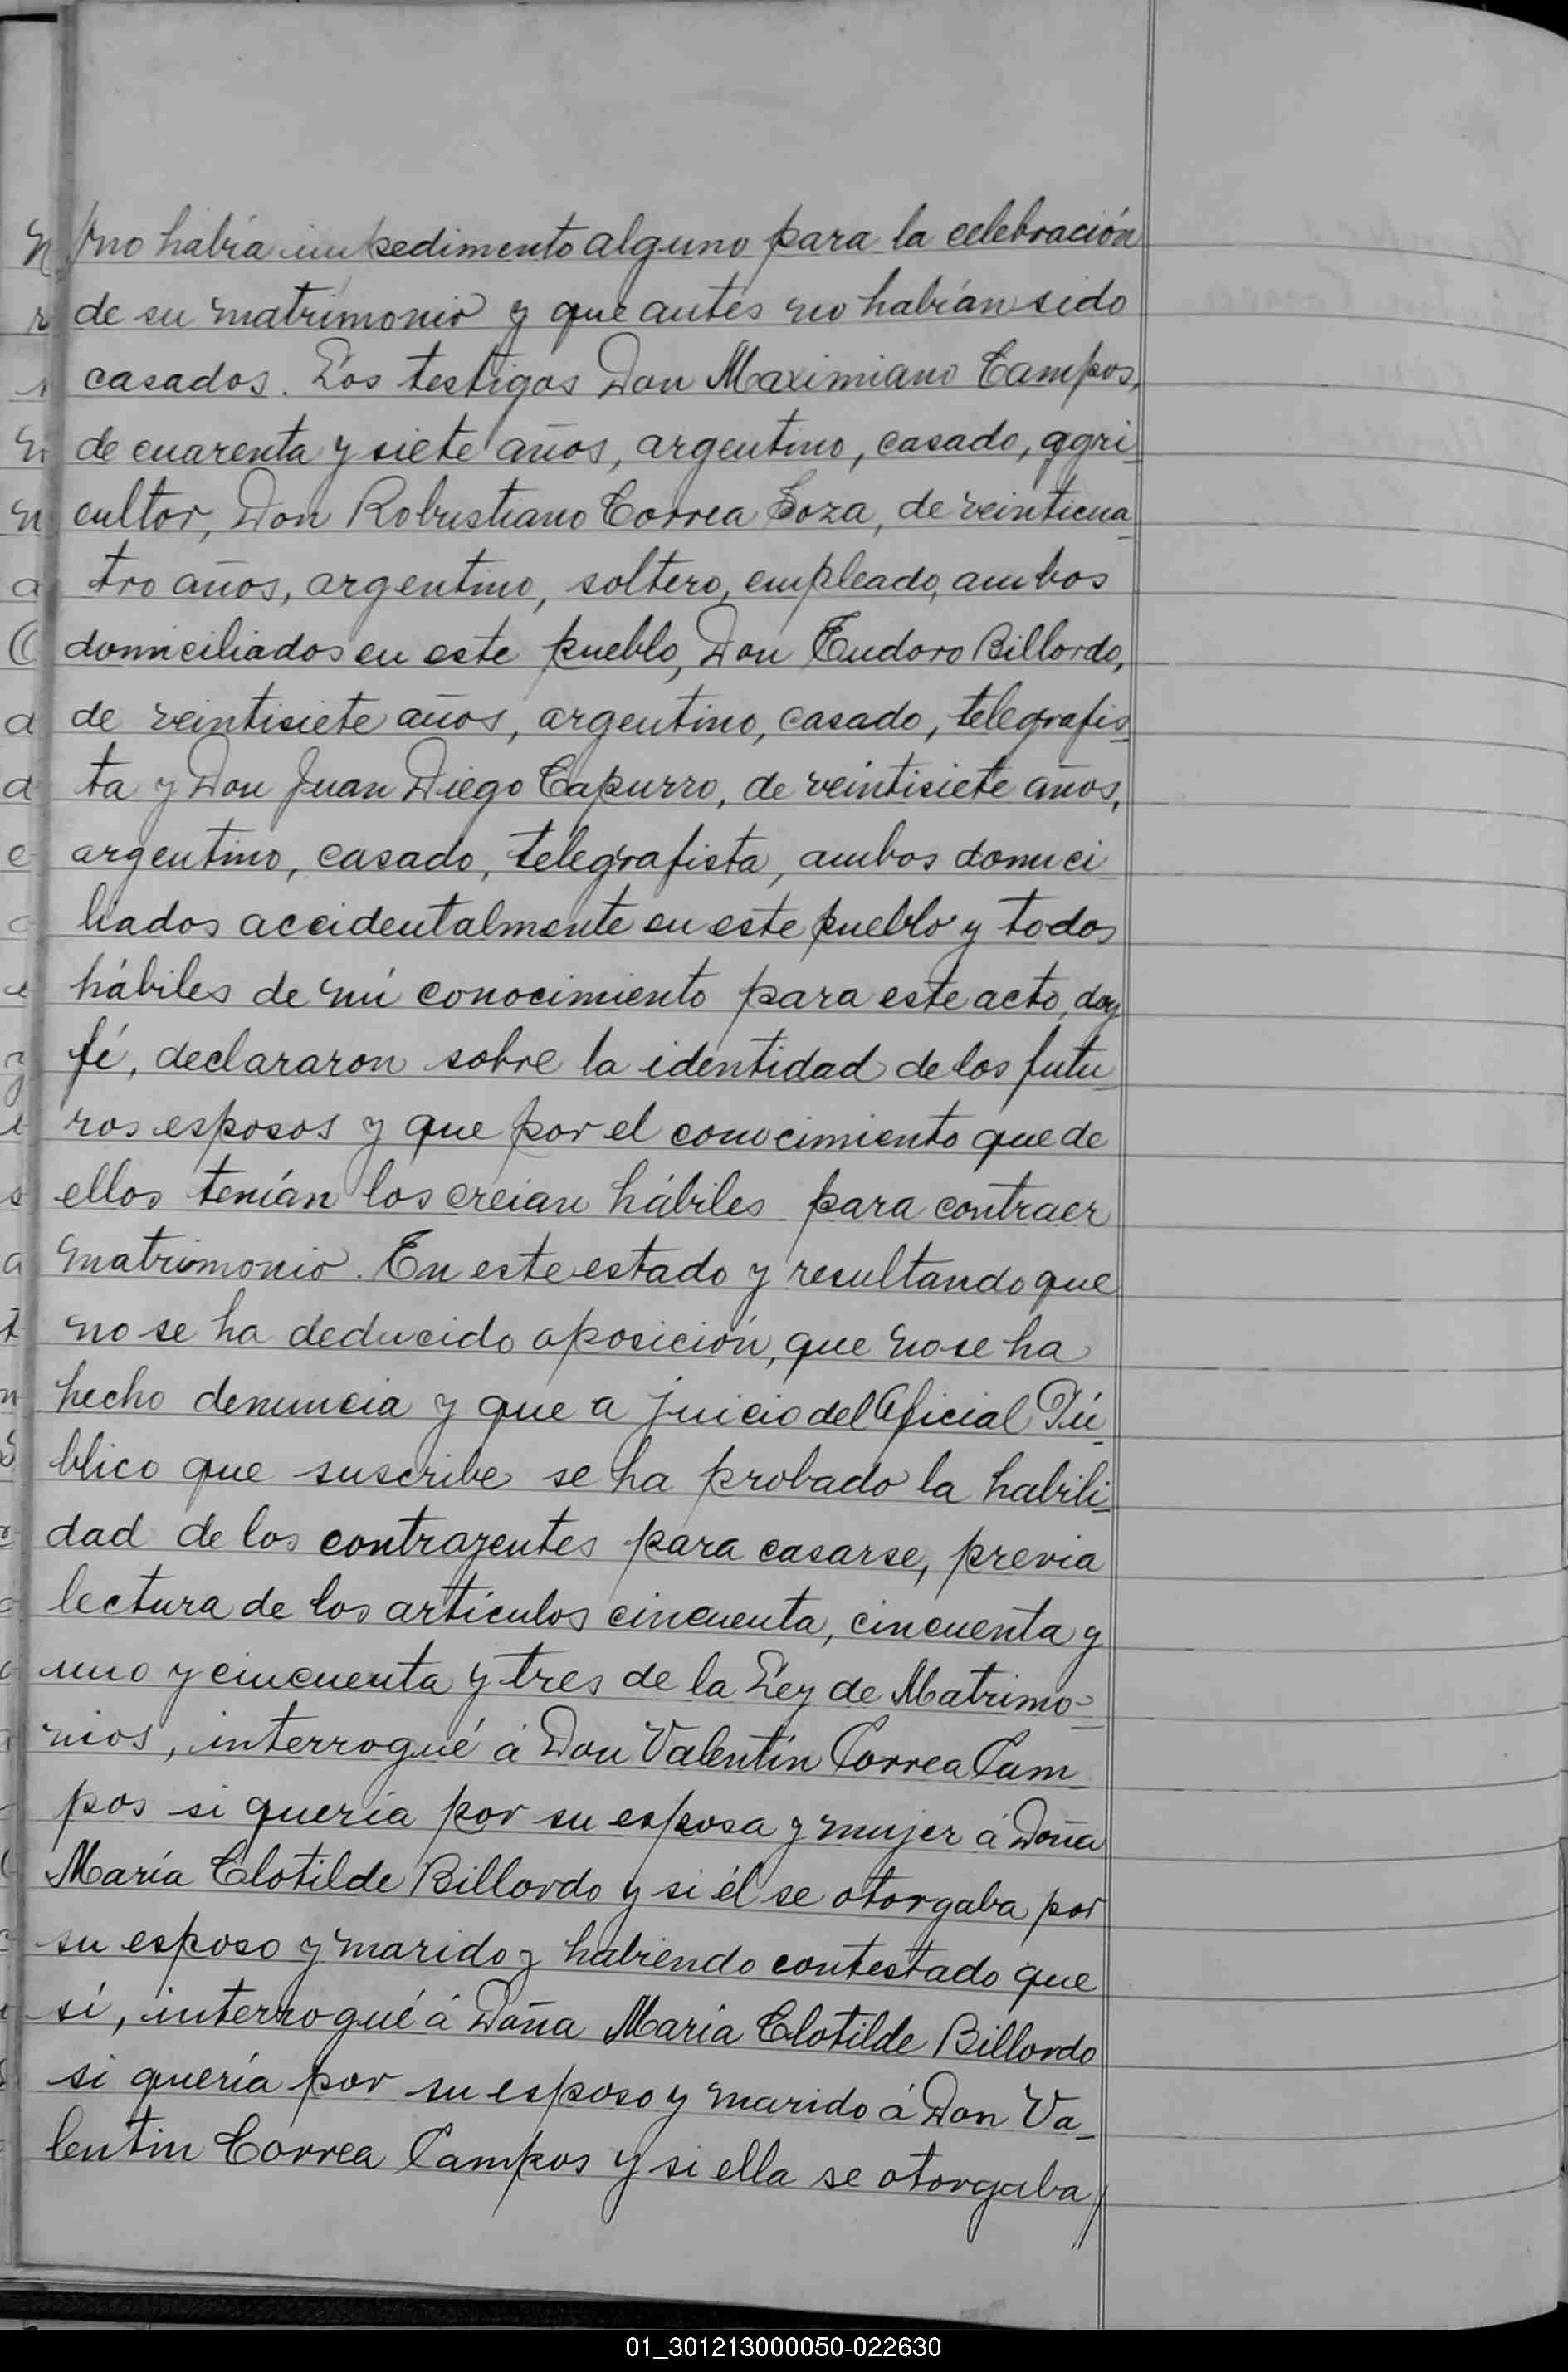 /no había impedimento alguno para la celebración
de su matrimonio y que antes no habían sido
casados. Los testigos Don Maximiano Campos,
de cuarenta y siete años, argentino, casado, agri-
cultor, Don Robustiano Correa Soza, de veinticua-
tro años, argentino, soltero, empleado, ambos
domiciliados en este pueblo, Don Eudoro Billordo,
de veintisiete años, argentino, casado, telegrafis-
ta y Don Juan Diego Capurro, de veintisiete años,
argentino, casado, telegrafista, ambos domici-
liados accidentalmente en este pueblo y todos
hábiles de mi conocimiento para este acto, doy
fé, declararon sobre la identidad de los futu-
ros esposos y que por el conocimiento que de
ellos tenían los creian hábiles para contraer
matrimonio. En este estado y resultando que
no se ha deducido oposición, que no se ha
hecho denuncia y que a juicio del Oficial Pú-
blico que suscribe se ha probado la habili-
dad de los contrayentes para casarse, previa
lectura de los artículos cincuenta, cincuenta y
uno y cincuenta y tres de la Ley de Matrimo-
nios, interrogué á Don Valentín Correa Cam-
pos si quería por su esposa y mujer á Doña
María Clotilde Billordo y si él se otorgaba por
su esposo y marido y habiendo contestado que
sí, interrogué á Doña María Clotilde Billordo
si quería por su esposo y marido á Don Va-
lentin Correa Campos y si ella se otorgaba/
01_301213000050-022630